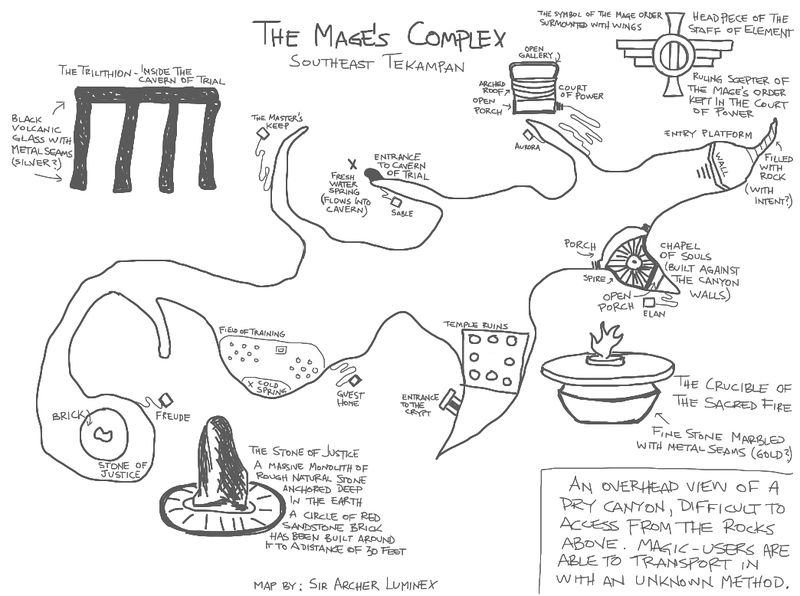 THE MAGE'S COMPLEX
SOUTHEAST TEKAMPAN
THE SYMBOL OF THE MAGE ORDER
SURMOUNTED WITH WINGS
HEADPIECE OF THE
STAFF OF ELEMENT
RULING SCEPTER OF
THE MAGE'S ORDER
KEPT IN THE COURT
OF POWER
THE TRILITHION - INSIDE THE
CAVERN OF TRIAL
BLACK
VOLCANIC
GLASS WITH
METAL SEAMS
(SILVER?)
OPEN
GALLERY
ARCHED
ROOF
OPEN
PORCH
COURT
OF POWER
AURORA
THE MASTER'S
KEEP
X
FRESH
WATER
SPRING
(FLOWS INTO
CAVERN)
ENTRANCE
TO CAVERN
OF TRIAL
SABLE
ENTRY PLATFORM
WALL
FILLED
WITH
ROCK
(WITH
INTENT?)
PORCH
SPIRE
OPEN
PORCH
CHAPEL
OF SOULS
(BUILT AGAINST
THE CANYON
WALLS)
ELAN
FIELD OF TRAINING
X COLD
SPRING
GUEST
HOME
TEMPLE RUINS
ENTRANCE
TO THE
CRYPT
BRICK
FREUDE
STONE OF
JUSTICE
THE STONE OF JUSTICE
A MASSIVE MONOLITH OF
ROUGH NATURAL STONE
ANCHORED DEEP
IN THE EARTH
A CIRCLE OF RED
SANDSTONE BRICK
HAS BEEN BUILT AROUND
IT TO A DISTANCE OF 30 FEET
THE CRUCIBLE OF
THE SACRED FIRE
FINE STONE MARBLED
WITH METAL SEAMS (GOLD?)
AN OVERHEAD VIEW OF A
DRY CANYON, DIFFICULT TO
ACCESS FROM THE ROCKS
ABOVE. MAGIC-USERS ARE
ABLE TO TRANSPORT IN
WITH AN UNKNOWN METHOD.
MAP BY: SIR ARCHER LUMINEX